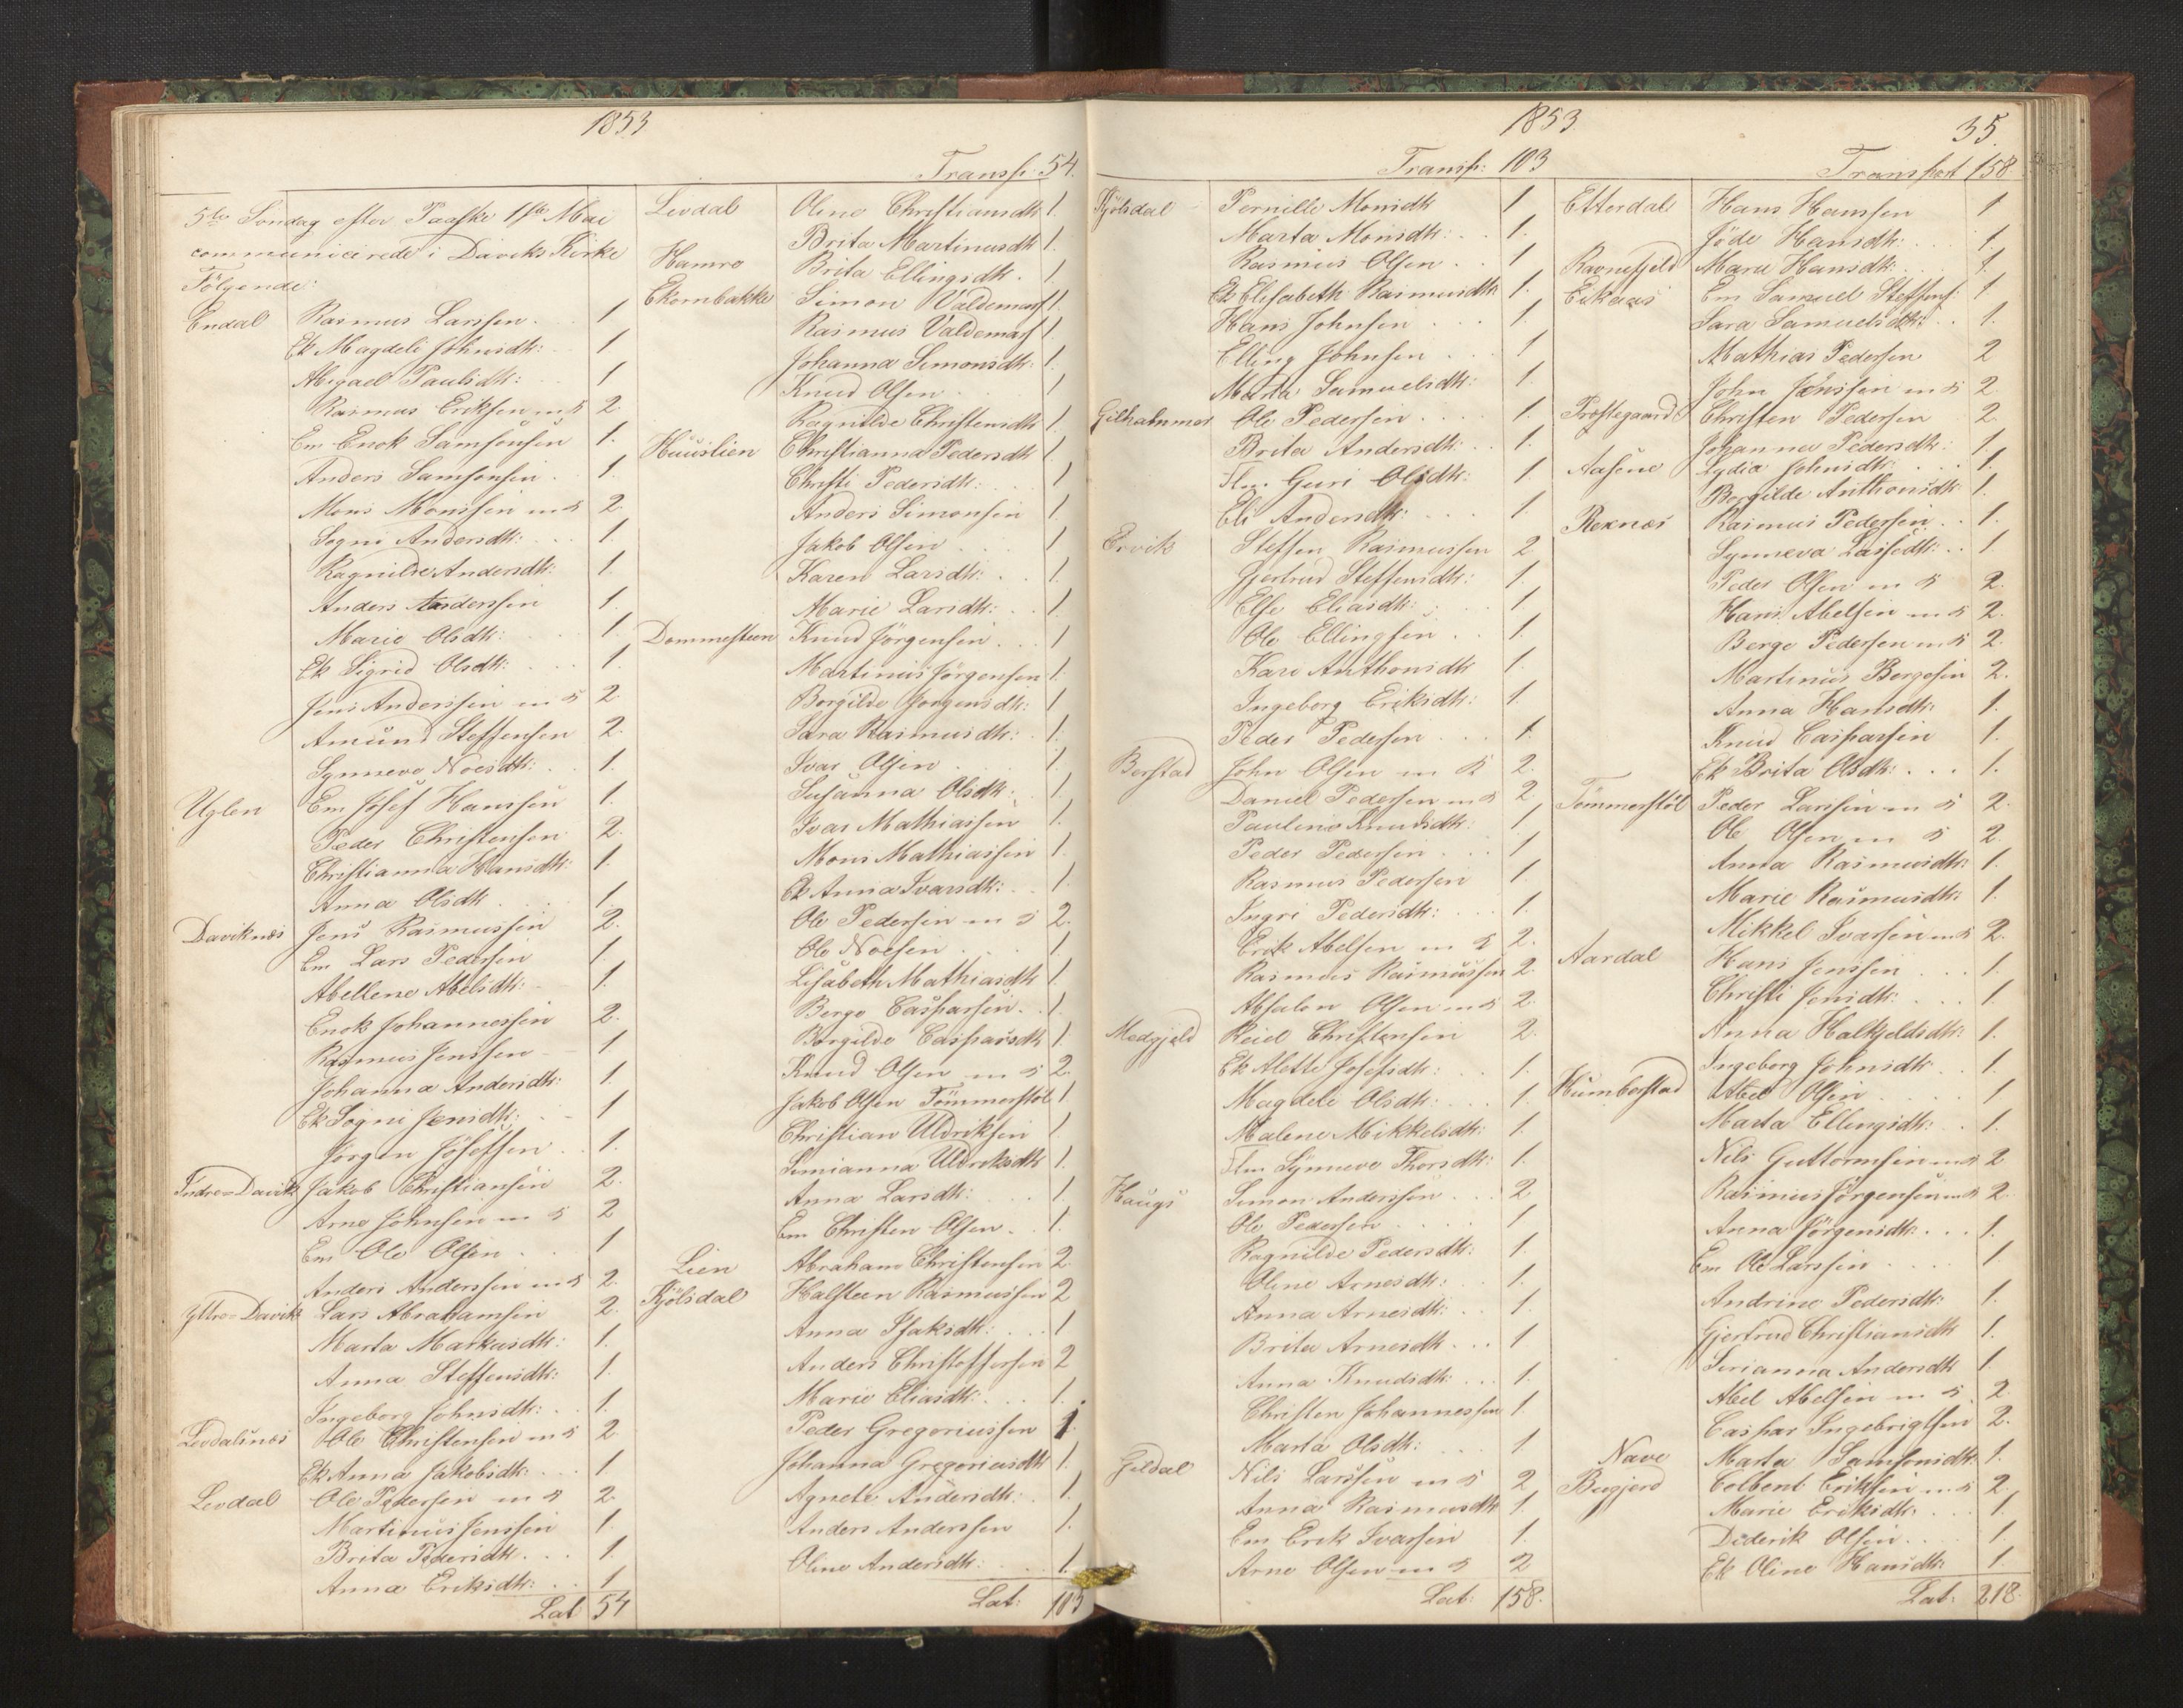 1853
Transp: 54.
5te Søndag efter Paaske 1ste Mai
communicerede i Daviks Kirke
Følgende:
Endal Rasmus Larssen 1
Ek Magdeli Johnsdtr: 1
Abigael Paulsdtr: 1
Rasmus Eriksen m h 2.
Em Enok Samsonsen 1.
Anders Samsonsen 1.
Mons Monssen m h 2
Sogni Andersdtr: 1.
Ragnilde Andersdtr: 1.
Anders Anderssen 1.
Marie Olsdtr: 1.
Ek Sigrid Olsdtr: 1.
Jens Anderssen m h 2
Amund Steffensen 2.
Synneve Noesdtr: 1.
Uglen Em Josef Hanssen 1.
Peder Christensen 2.
Christianna Hansdtr: 1.
Anna Olsdtr 1.
Daviknæs Jens Rasmussen 2.
Em Lars Pedersen 1.
Abellene Abelsdtr: 1.
Enok Johannessen 2.
Rasmus Jenssen 1
Johanna Andersdtr: 1.
Ek Sogni Jensdtr: 1
Jørgen Josefsen 1.
Indre=Davik Jakob Christiansen 2.
Arne Johnsen m h 2
Em Ole Olsen 1
Anders Anderssen m h 2.
Yttre=Davik Lars Abrahamsen 2.
Marta Markusdtr: 1.
Anna Steffensdtr: 1.
Ingeborg Johnsdtr: 1.
Levdalsnæs Ole Christensen m h 2
Ek Anna Jakobsdtr: 1
Levdal Ole Pedersen m h 2.
Martinus Jenssen 1.
Brita Pedersdtr. 1.
Anna Eriksdtr: 1
Lat 54
Levdal Oline Christiansdtr 1.
Brita Martinusdtr 1.
Hamre Brita Ellingsdtr. 1
Ekornbakke Simon Valdemars 1.
Rasmus Valdemars 1
Johanna Simonsdtr: 1.
Knud Olsen 1
Ragnilde Christensdtr 1.
Huuslien Christianna Pedersdtr 1
Christi Pedersdtr: 1
Anders Simonsen 1
Jakob Olsen 1
Karen Larsdtr: 1.
Marie Larsdtr: 1
Dommesteen Knud Jörgensen 1
Martinus Jörgensen 1.
Borgilde Jörgensdtr: 1
Sara Rasmusdtr: 1.
Ivar Olsen 1.
Susanna Olsdtr: 1
Ivar Mathiassen 1.
Mons Mathiassen 1
Ek Anna Ivarsdtr: 1.
Ole Pedersen m h 2.
Ole Noesen 1
Lisabeth Mathiasdtr 1
Berge Casparsen 1.
Borgilde Casparsdtr 1.
Knud Olsen m h 2.
Jakob Olsen Tömmerstöl 1
Christian Uldriksen 1
Simianna Uldriksdtr 1.
Anna Larsdtr: 1.
Em Christen Olsen 1.
Lien Abraham Christensen 2
Kjölsdal Halsteen Rasmussen 2
Anna Isaksdtr: 1
Anders Christoffersen 2
Marie Eliasdtr: 1.
Peder Gregoriussen 1.
Johanna Gregoriusdtr 1.
Agnete Andersdtr: 1.
Anders Anderssen 1.
Oline Andersdtr: 1.
Lat: 103
1853
35.
Transp: 103
Kjölsdal Pernille Monsdtr 1
Marta Monsdtr: 1.
Rasmus Olsen 1
Ek Elisabeth Rasmusdtr 1.
Hans Johnsen 1.
Elling Johnsen 1
Marta Samuelsdtr: 1.
Gilhammer Ole Pedersen 1.
Brita Andersdtr: 1.
Guri Olsdtr: 1.
Eli Andersdtr: 1.
Ervik Steffen Rasmussen 2
Gjertrud Steffensdtr: 1.
Else Eliasdtr: 1
Ole Ellingsen 1.
Kari Anthonsdtr 1.
Ingeborg Eriksdtr: 1.
Peder Pedersen 1.
Berstad John Olsen m h 2.
Daniel Pedersen m h 2.
Pauline Knudsdtr: 1
Peder Pedersen 1
Rasmus Pedersen 1.
Ingri Pedersdtr: 1.
Erik Abelsen m h 2.
Rasmus Rasmussen 2.
Absalon Olsen m h 2.
Medgjeld Reiel Christensen 2.
Ek Alette Josefsdtr: 1.
Magdele Olsdtr: 1.
Malene Mikkelsdtr: 1.
Synneve Thorsdtr: 1.
Haugs Simon Anderssen 2
Ole Pedersen 1
Ragnilde Pedersdtr: 1.
Oline Arnesdtr: 1.
Anna Arnesdtr: 1.
Brita Arnesdtr 1
Anna Knudsdtr: 1.
Christen Johannessen 1
Marta Olsdtr: 1
Gjildal Nils Larssen m h 2
Anna Rasmusdtr 1.
Em Erik Ivarsen 1.
Arne Olsen m h 2
Lat: 158.
Transport 158
Etterdal Hans Hanssen 1
Jöde Hansdtr: 1.
Ravnefjeld Marie Hansdtr: 1.
Eikaas Em Samuel Steffens: 1
Sara Samuelsdtr: 1.
Mathias Pedersen 2
John Jönssen m h 2
Prostegaard Christen Pedersen 2
Johanne Pedersdtr: 1.
Aasene Lydia Johnsdtr: 1.
Borgilde Anthonsdtr 1.
Rexnæs Rasmus Pedersen 1.
Synneva Lassedtr: 1
Peder Olsen m h 2.
Hans Abelsen m h 2.
Berge Pedersen m h 2.
Martinus Bergesen 2.
Anna Hansdtr: 1.
Knud Casparsen 1.
Ek Brita Olsdtr: 1.
Tömmerstöl Peder Larssen m h 2.
Ole Olsen m h 2.
Anna Rasmusdtr: 1.
Marie Rasmusdtr: 1.
Mikkel Ivarsen m h 2.
Aardal Hans Jenssen 1.
Christi Jensdtr: 1.
Anna Halkjeldsdtr: 1.
Ingeborg Johnsdtr 1.
Humberstad Abel Olsen 1
Marta Ellingsdtr: 1.
Nils Guttormsen m h 2
Rasmus Jörgensen m h 2.
Anna Jörgensdtr: 1.
Em Ole Larssen 1
Andrine Pedersdtr: 1.
Gjertrud Christiansdtr 1.
Serianna Andersdtr 1.
Abel Abelsen m h 2
Caspar Ingebrigtsen 2.
Nave Marta Samsonsdtr: 1.
Bugjerd Colbent Eriksen m h 2.
Marie Eriksdtr: 1.
Diderik Olsen 1
Ek Oline Hansdtr: 1.
Lat: 218.